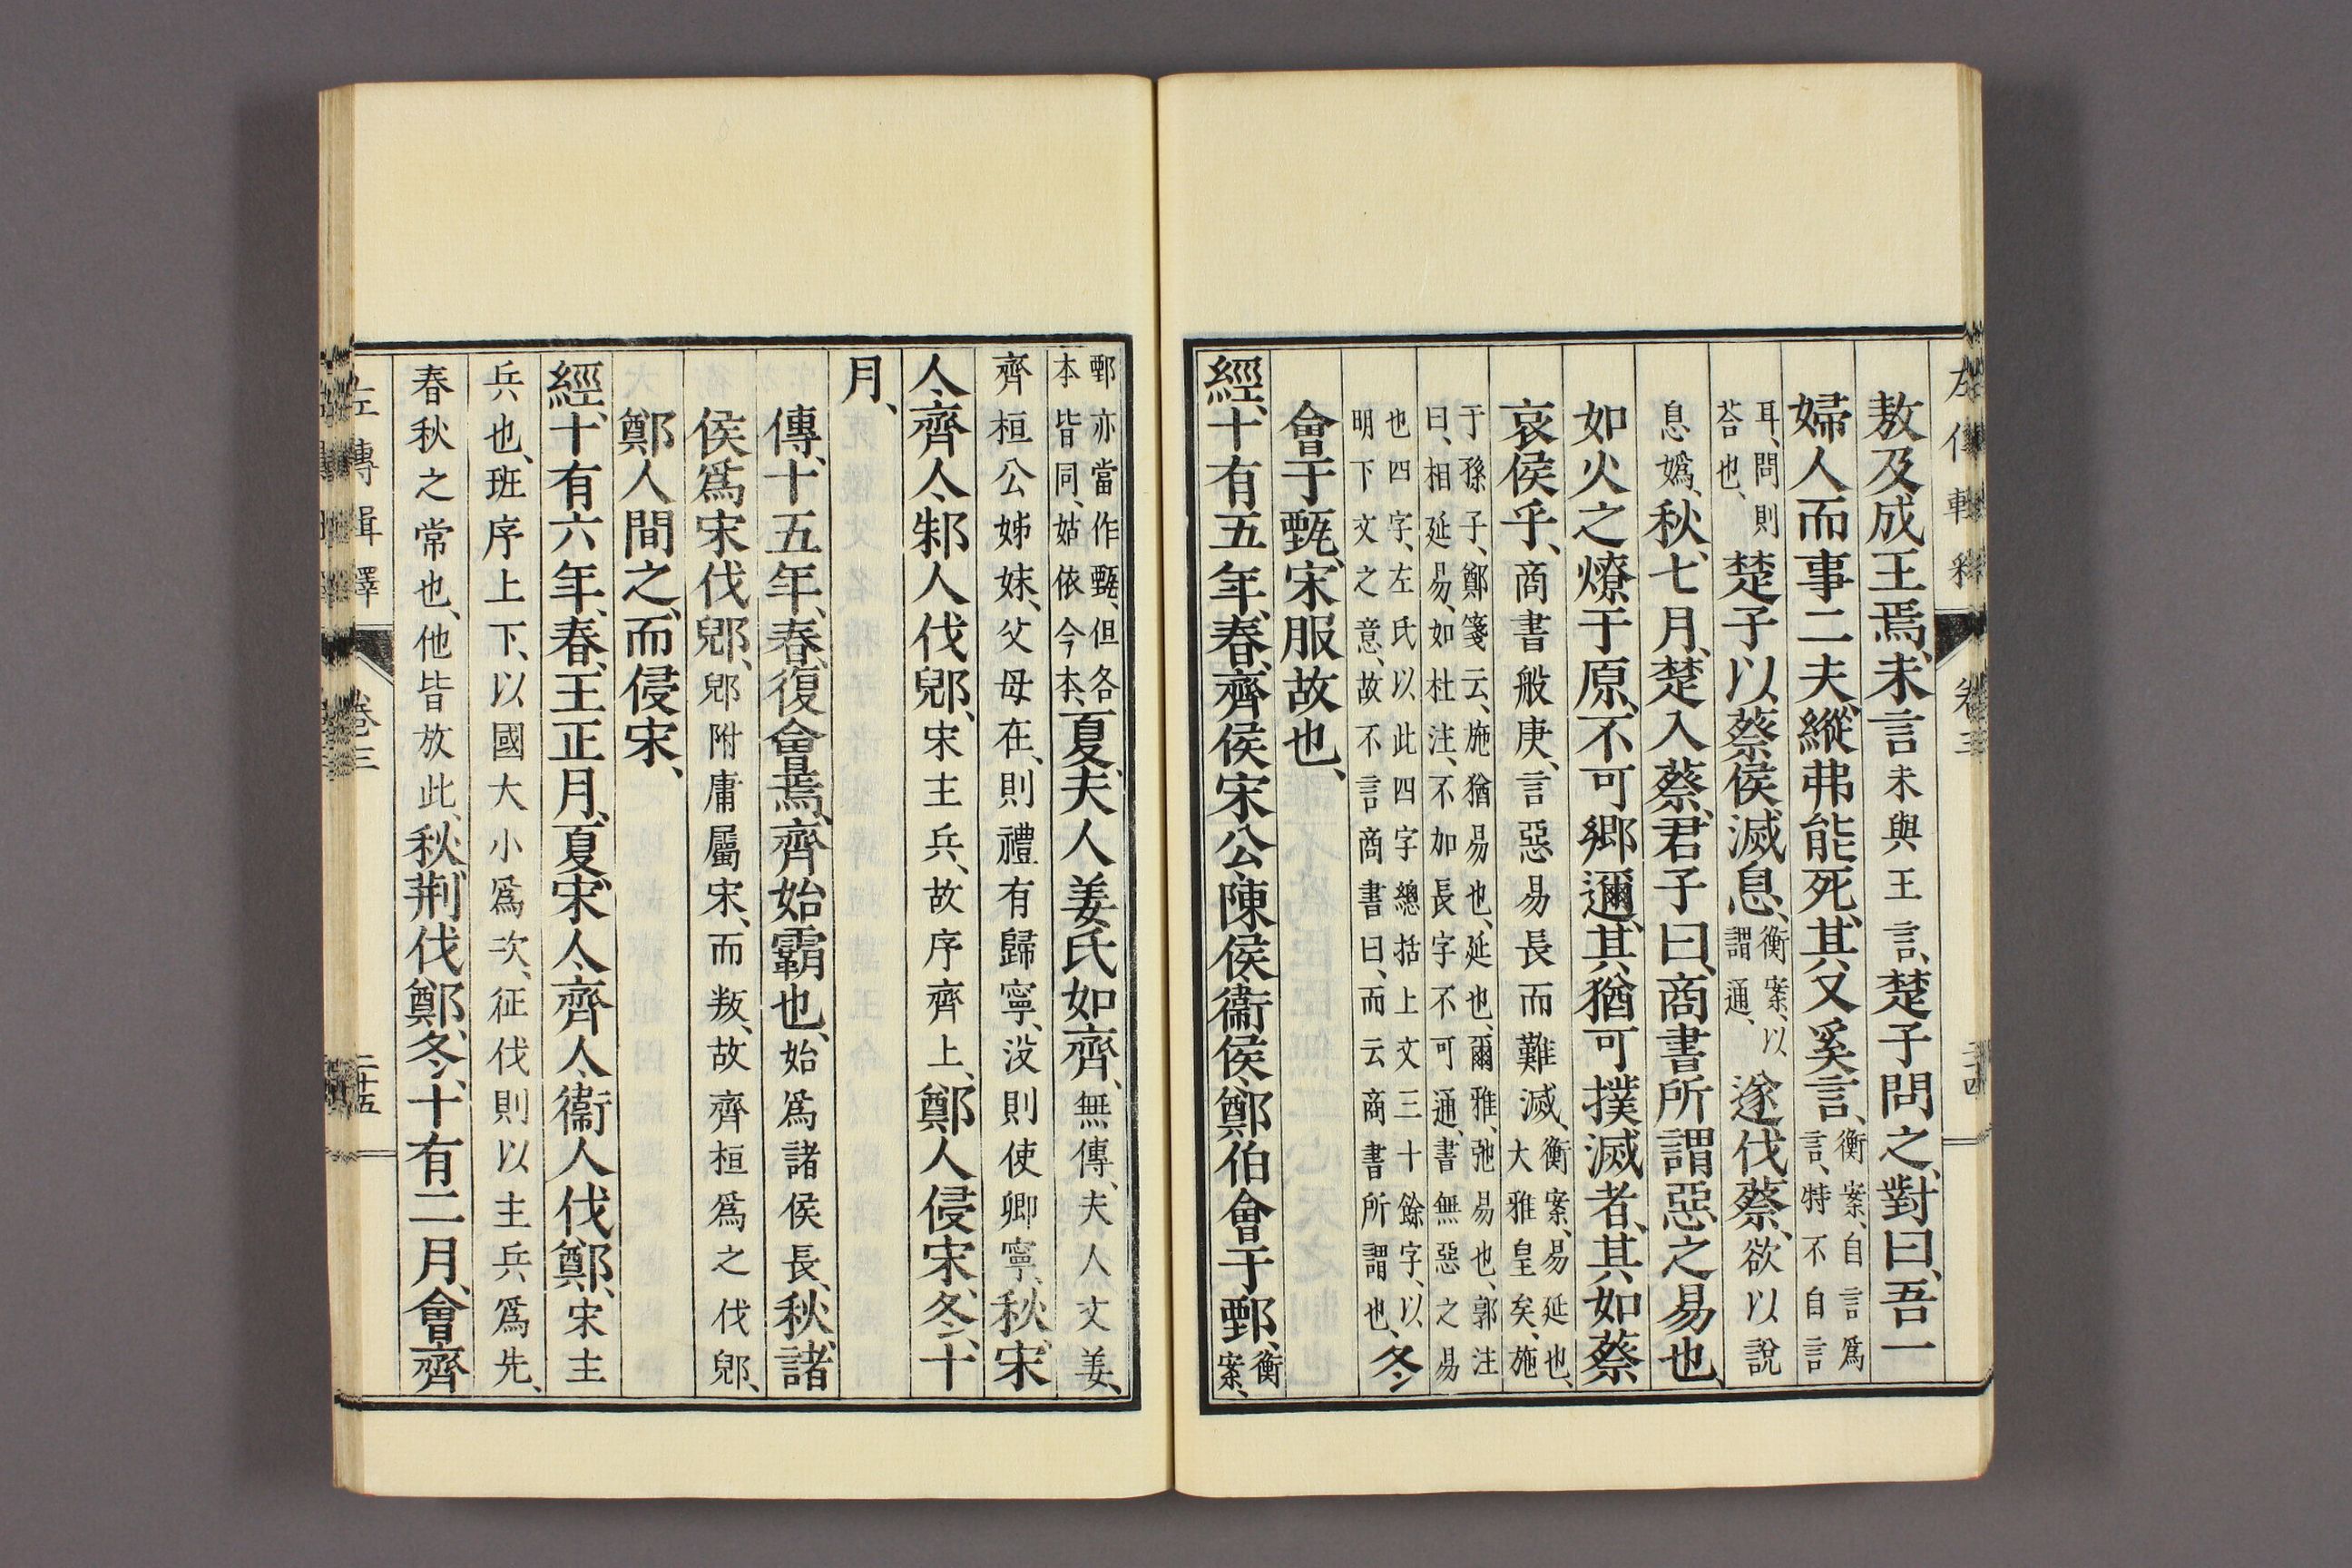 左傳輯釋 卷三 二十四
敖及成王焉、未言未與王言、楚子問之、對曰、吾一
婦人而事二夫、縱弗能死、其又奚言、衡案、自言爲言、特不自言
耳、問則荅也、楚子以蔡侯滅息、衡案、以謂通、遂伐蔡、欲以說
息嬀、秋、七月、楚入蔡、君子曰、商書所謂惡之易也、
如火之燎于原、不可鄉邇、其猶可撲滅者、其如蔡
哀侯乎、商書般庚、言惡易長而難滅、衡案、易延也、大雅皇矣、施
于孫子、鄭箋云、施猶易也、延也、爾雅、弛易也、郭注曰、相延易、如杜注、不加長字不可通、書無惡之易
也四字、左氏以此四字總括上文三十餘字、以明下文之意、故不言商書曰、而云商書所謂也、冬、
會于甄、宋服故也、
經、十有五年、春、齊侯宋公陳侯衞侯鄭伯會于鄄、衡案、
鄄亦當作甄、但各本皆同、姑依今本、夏、夫人姜氏如齊、無傳、夫人文姜、
齊桓公姊妹、父母在、則禮有歸寧、沒則使卿寧、秋、宋
人齊人邾人伐郳、宋主兵、故序齊上、鄭人侵宋、冬、十
月、
傳、十五年、春、復會焉、齊始霸也、始爲諸侯長、秋、諸
侯爲宋伐郳、郳附庸屬宋、而叛、故齊桓爲之伐郳、
鄭人間之、而侵宋、
經、十有六年、春、王正月、夏、宋人齊人衞人伐鄭、宋主
兵也、班序上下、以國大小爲次、征伐則以主兵爲先、
春秋之常也、他皆放此、秋、荆伐鄭、冬、十有二月、會齊
左傳輯釋 卷三 二十五